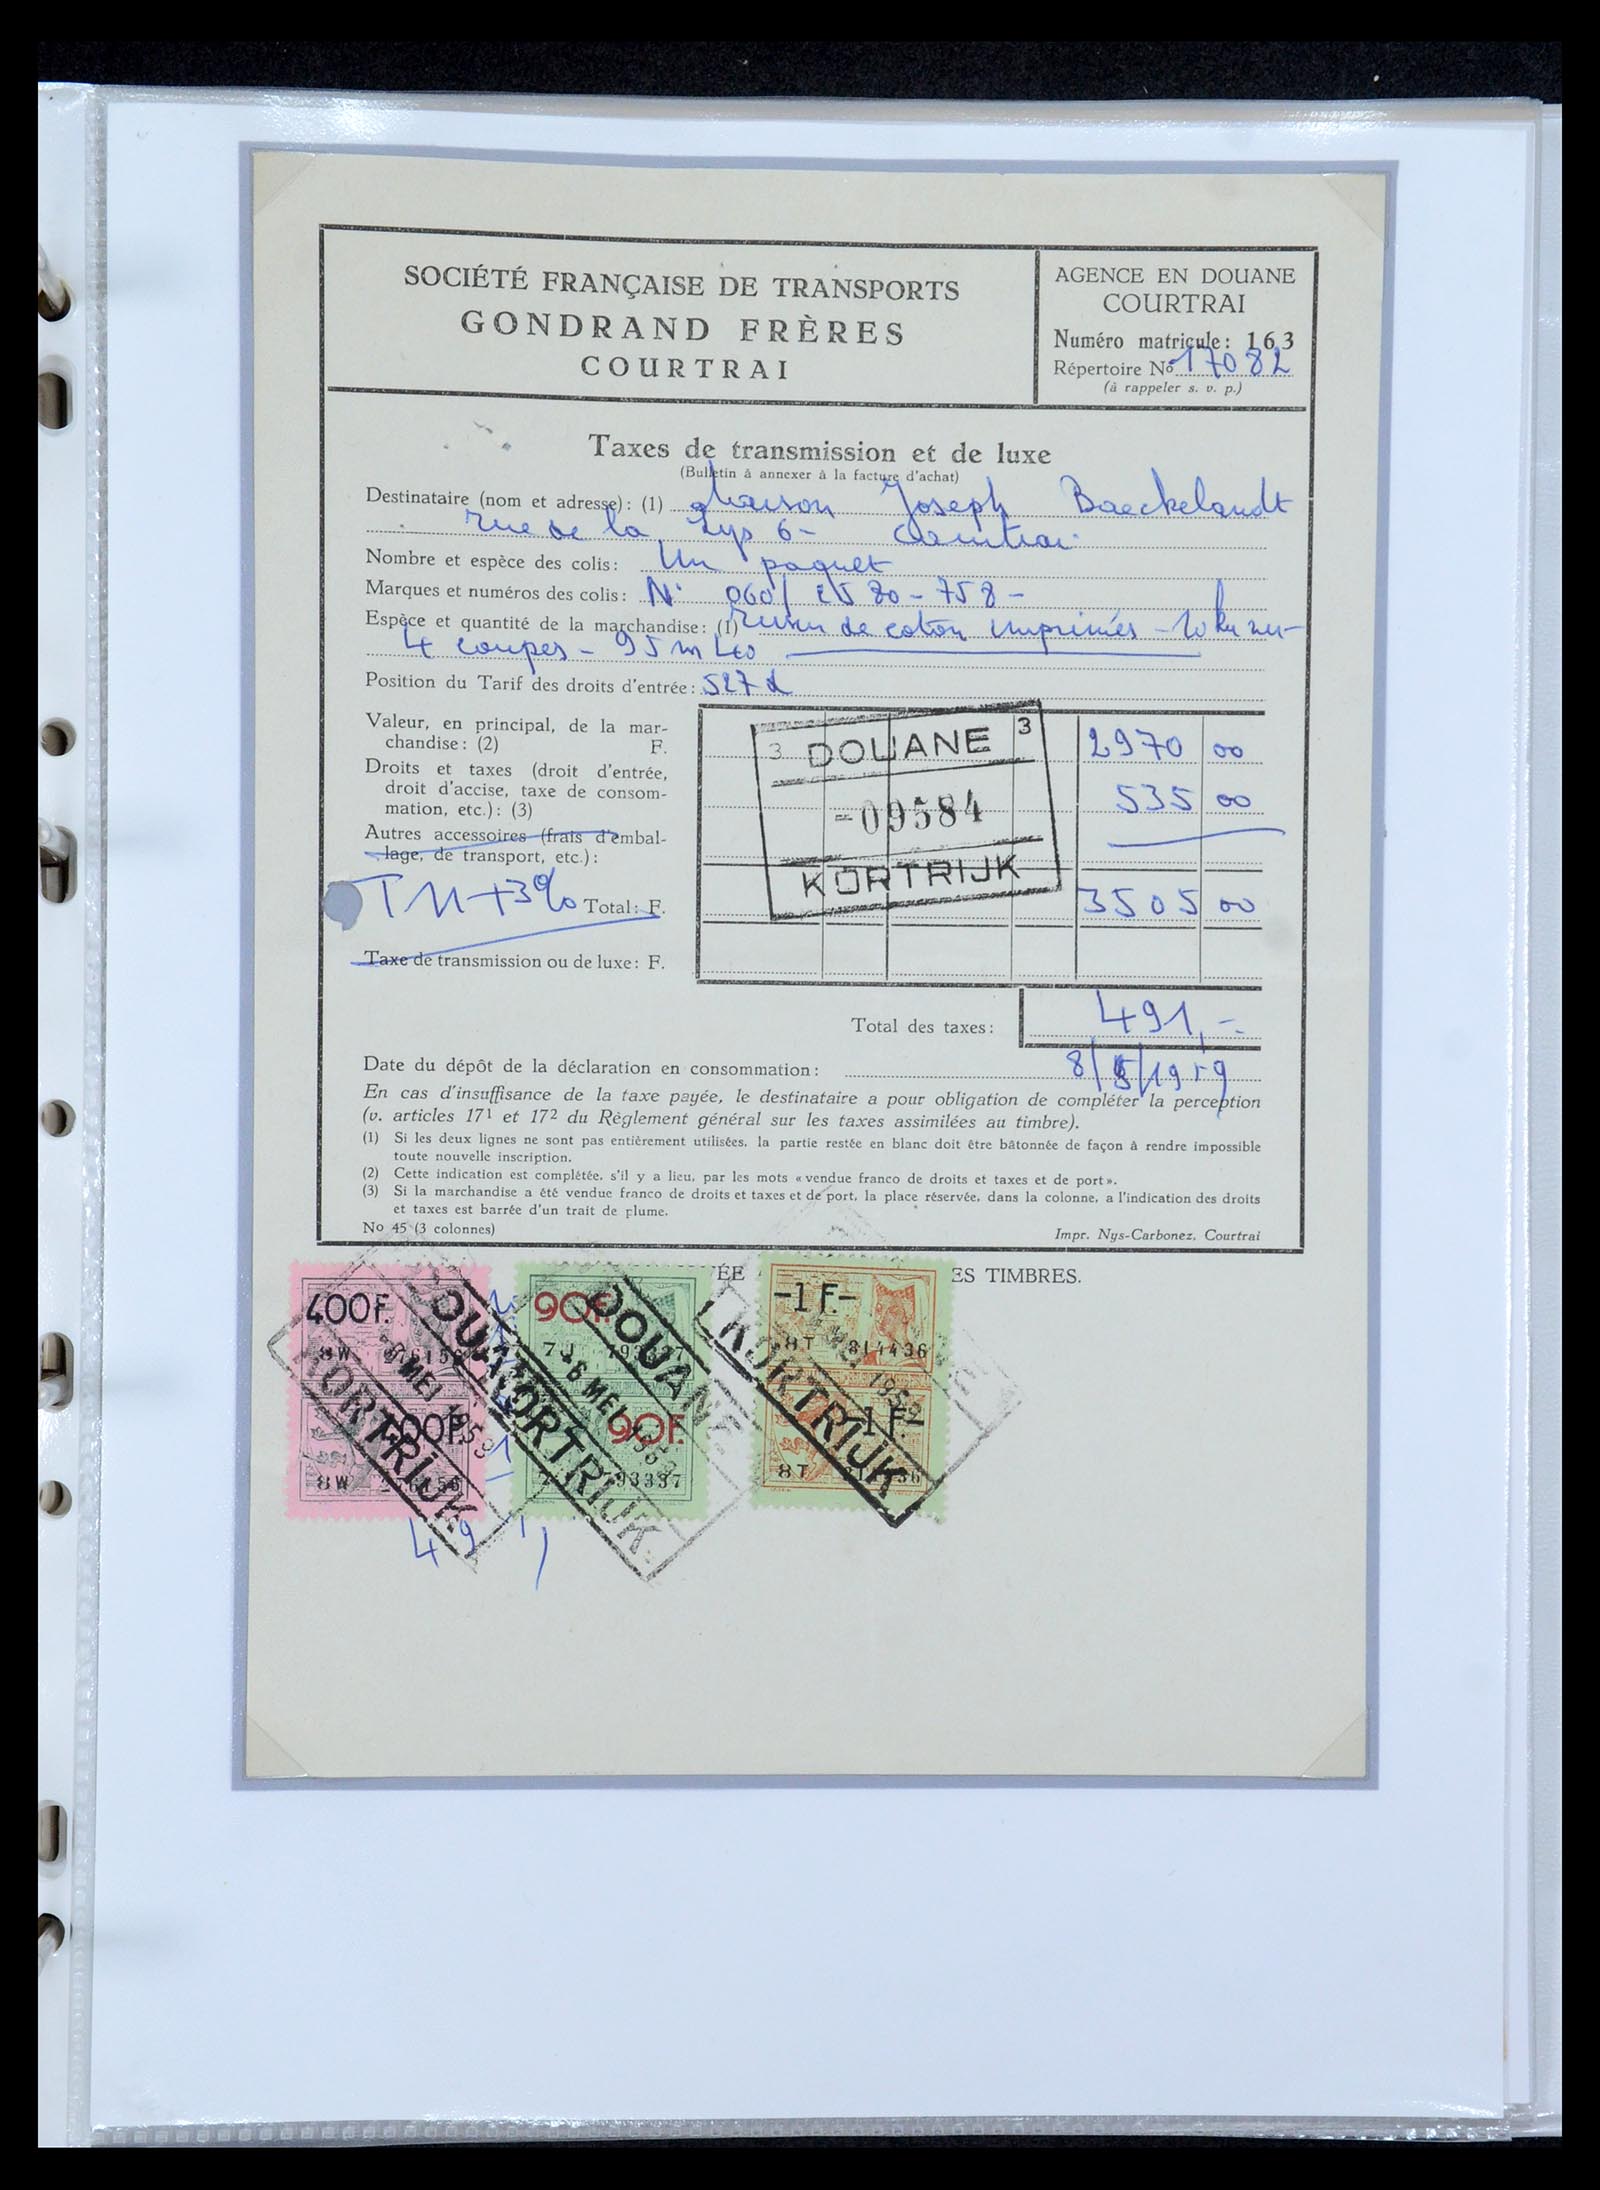 SOCIÉTÉ FRANÇAISE DE TRANSPORTS
GONDRAND FRÈRES
COURTRAI
AGENCE EN DOUANE
COURTRAI
Numéro matricule: 163
Répertoire No 17082
(à rappeler s. v. p.)
Taxes de transmission et de luxe
(Bulletin à annexer à la facture d'achat)
Destinataire (nom et adresse): (1) Maison Joseph Baeckelandt
rue de la Lys 6 - Courtrai
Nombre et espèce des colis: Un paquet
Marques et numéros des colis: N° 060/ 2580 - 758 -
Espèce et quantité de la marchandise: (1) de coton imprimés
4 coupes - 95 m
Position du Tarif des droits d'entrée: 527 d
Valeur, en principal, de la mar-
chandise: (2) F. 2970 00
Droits et taxes (droit d'entrée,
droit d'accise, taxe de consom-
mation, etc.): (3) 535 00
Autres accessoires (frais d'embal-
lage, de transport, etc.):
3 DOUANE 3
-09584
KORTRIJK
+3% Total: F. 3505 00
Taxe de transmission ou de luxe: F.
Total des taxes: 491,-
Date du dépôt de la déclaration en consommation: 8/5/1959
En cas d'insuffisance de la taxe payée, le destinataire a pour obligation de compléter la perception
(v. articles 17¹ et 17² du Règlement général sur les taxes assimilées au timbre).
(1) Si les deux lignes ne sont pas entièrement utilisées, la partie restée en blanc doit être bâtonnée de façon à rendre impossible
toute nouvelle inscription.
(2) Cette indication est complétée, s'il y a lieu, par les mots « vendue franco de droits et taxes et de port ».
(3) Si la marchandise a été vendue franco de droits et taxes et de port, la place réservée, dans la colonne, a l'indication des droits
et taxes est barrée d'un trait de plume.
No 45 (3 colonnes)
Impr. Nys-Carbonez, Courtrai
ÉE ES TIMBRES.
400F. 90F. -1F.-
8W 7J 793337 8T 814436
DOUANE
KORTRIJK
KORTRIJK
KORTRIJK
90F. -1F.-
8W 793337 8T
491,